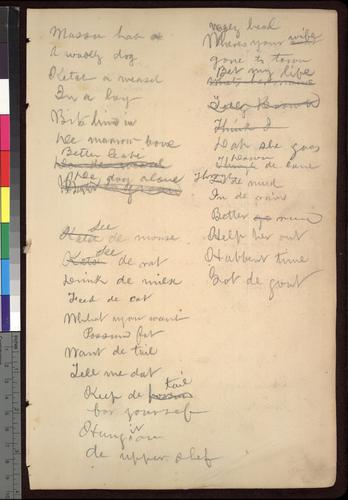 Massa had a
A wooly dog
Ketch a weasel
In a bag
Bit him in
De marrow bone
Better leave
De dog alone
See de mouse
See de rat
Drink de milk
Feed de cat
What you want
Possum fat
Want de tail
Tell me dat
Keep de tail
for yourself
Hung it on
de upper shef
Wheres your wife
gone to town
Bet my life
Think I
Dah she goes
Thrown
Thru de mud
In de rain
Better go
Help her out
Habbent time
Got de gout